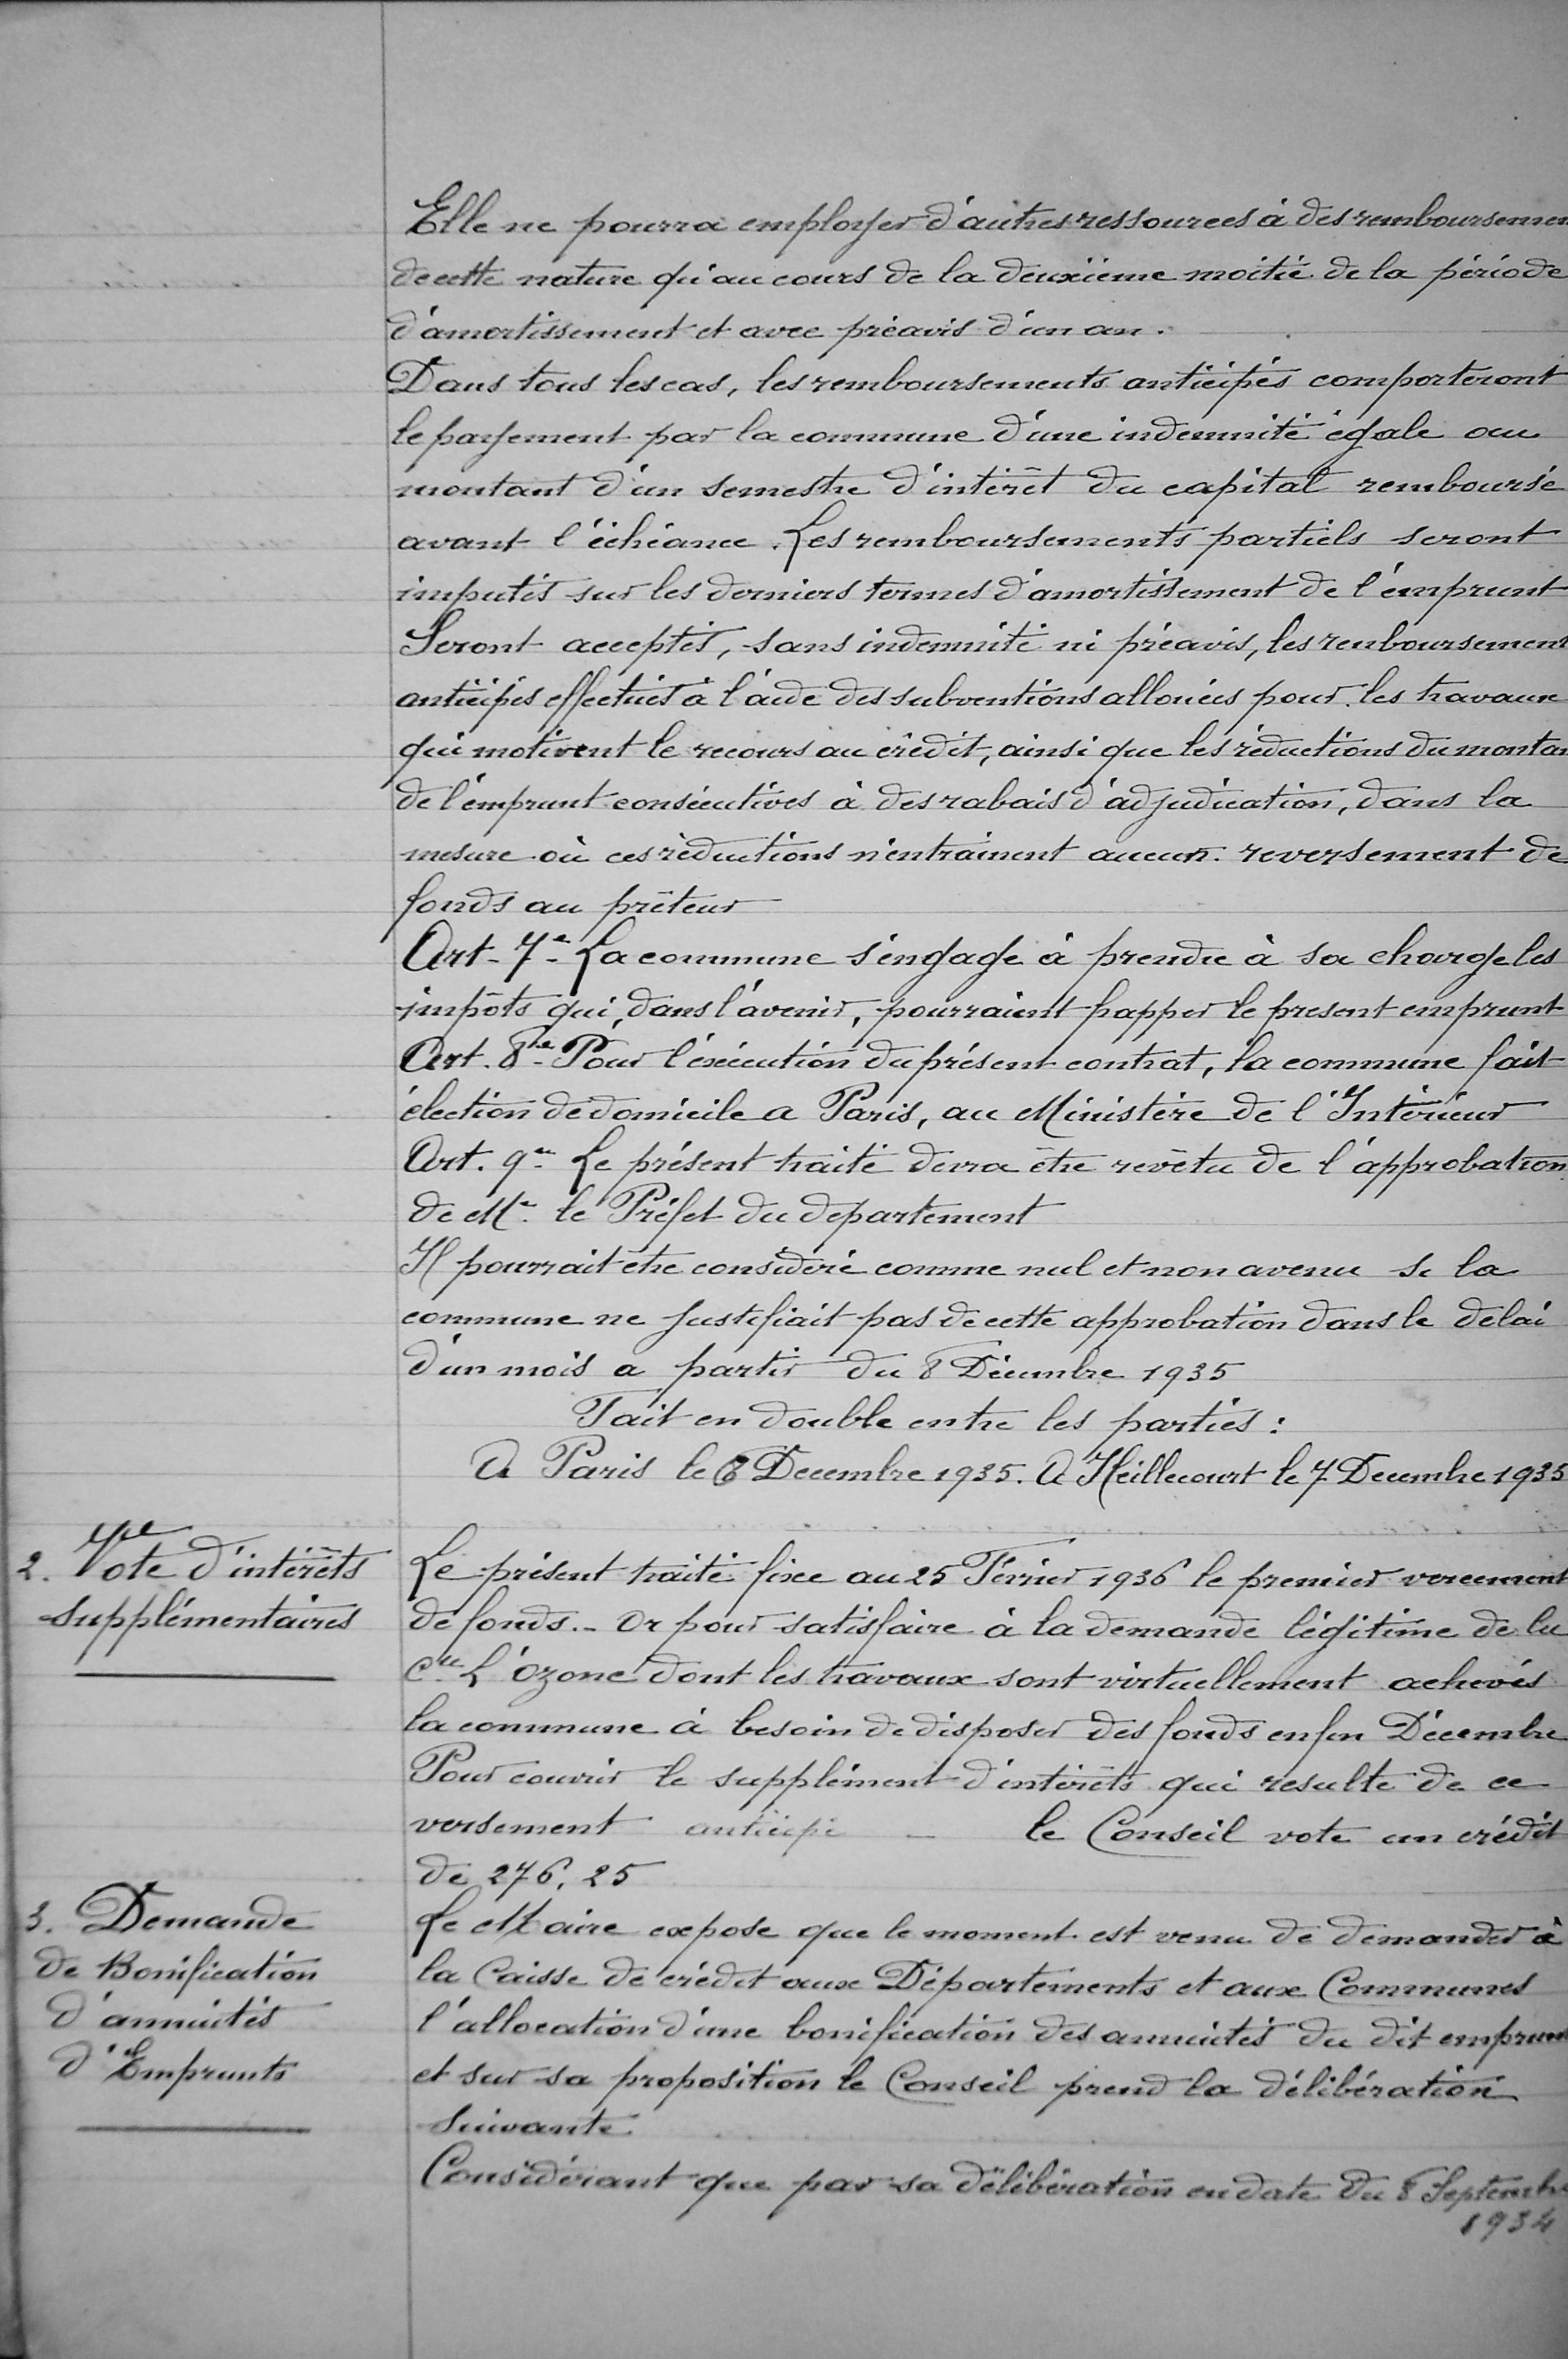 Elle ne pourra employer d'autres ressources à des remboursemen
de cette nature qu'au cours de la deuxième moitié de la période
d'amortissement et avec préavis d'un an.
Dans tous les cas, les remboursements anticipés comporteront
le payement par la commune d'une indemnité égale au
montant d'un semestre d'intérêt du capital remboursé
avant l'échéance. Les remboursements partiels seront
imputés sur les derniers termes d'amortissement de l'emprunt
Seront acceptés, sans indemnité ni préavis, les remboursement
anticipés effectués à l'aide des subventions allouées pour les travaux
qui motivent le recours au crédit, ainsi que les réductions du montan
de l'emprunt consécutives à des rabais d'adjudication, dans la
mesure où ces réductions n'entrainent aucun reversement de
fonds au prêteur
Art. 7e La commune s'engage à prendre à sa charge les
impôts qui, dans l'avenir, pourraient frapper le present emprunt
Art. 8e Pour l'exécution du présent contrat, la commune fait
élection de domicile a Paris, au Ministère de l'Intérieur
Art. 9e Le présent traité devra être revêtu de l'approbation
de Mr. le Préfet du departement
Il pourrait être considéré comme nul et non avenu si la
commune ne justifiait pas de cette approbation dans le délai
d'un mois a partir du 8 Décembre 1935
Fait en double entre les parties :
A Paris le 8 Decembre 1935. A Heillecourt le 7 Decembre 1935
2. Vote d'intérêts
supplémentaires
Le présent traité fixe au 25 Février 1936 le premier versement
de fonds. - Or pour satisfaire à la demande légitime de la
Cie L'Ozone dont les travaux sont virtuellement achevés
la commune à besoin de disposer des fonds en fin Décembre
Pour couvrir le supplément d'intérêts qui resulte de ce
versement anticipé - le Conseil vote un crédit
de 276,25
3. Demande
de Bonification
d'annuités
d'Emprunts
Le Maire expose que le moment est venu de demander à
la Caisse de crédit aux Départements et aux Communes
l'allocation d'une bonification des annuités du dit emprunt
et sur sa proposition le Conseil prend la délibération
suivante.
Considérant que par sa délibération en date du 8 Septembre
1934